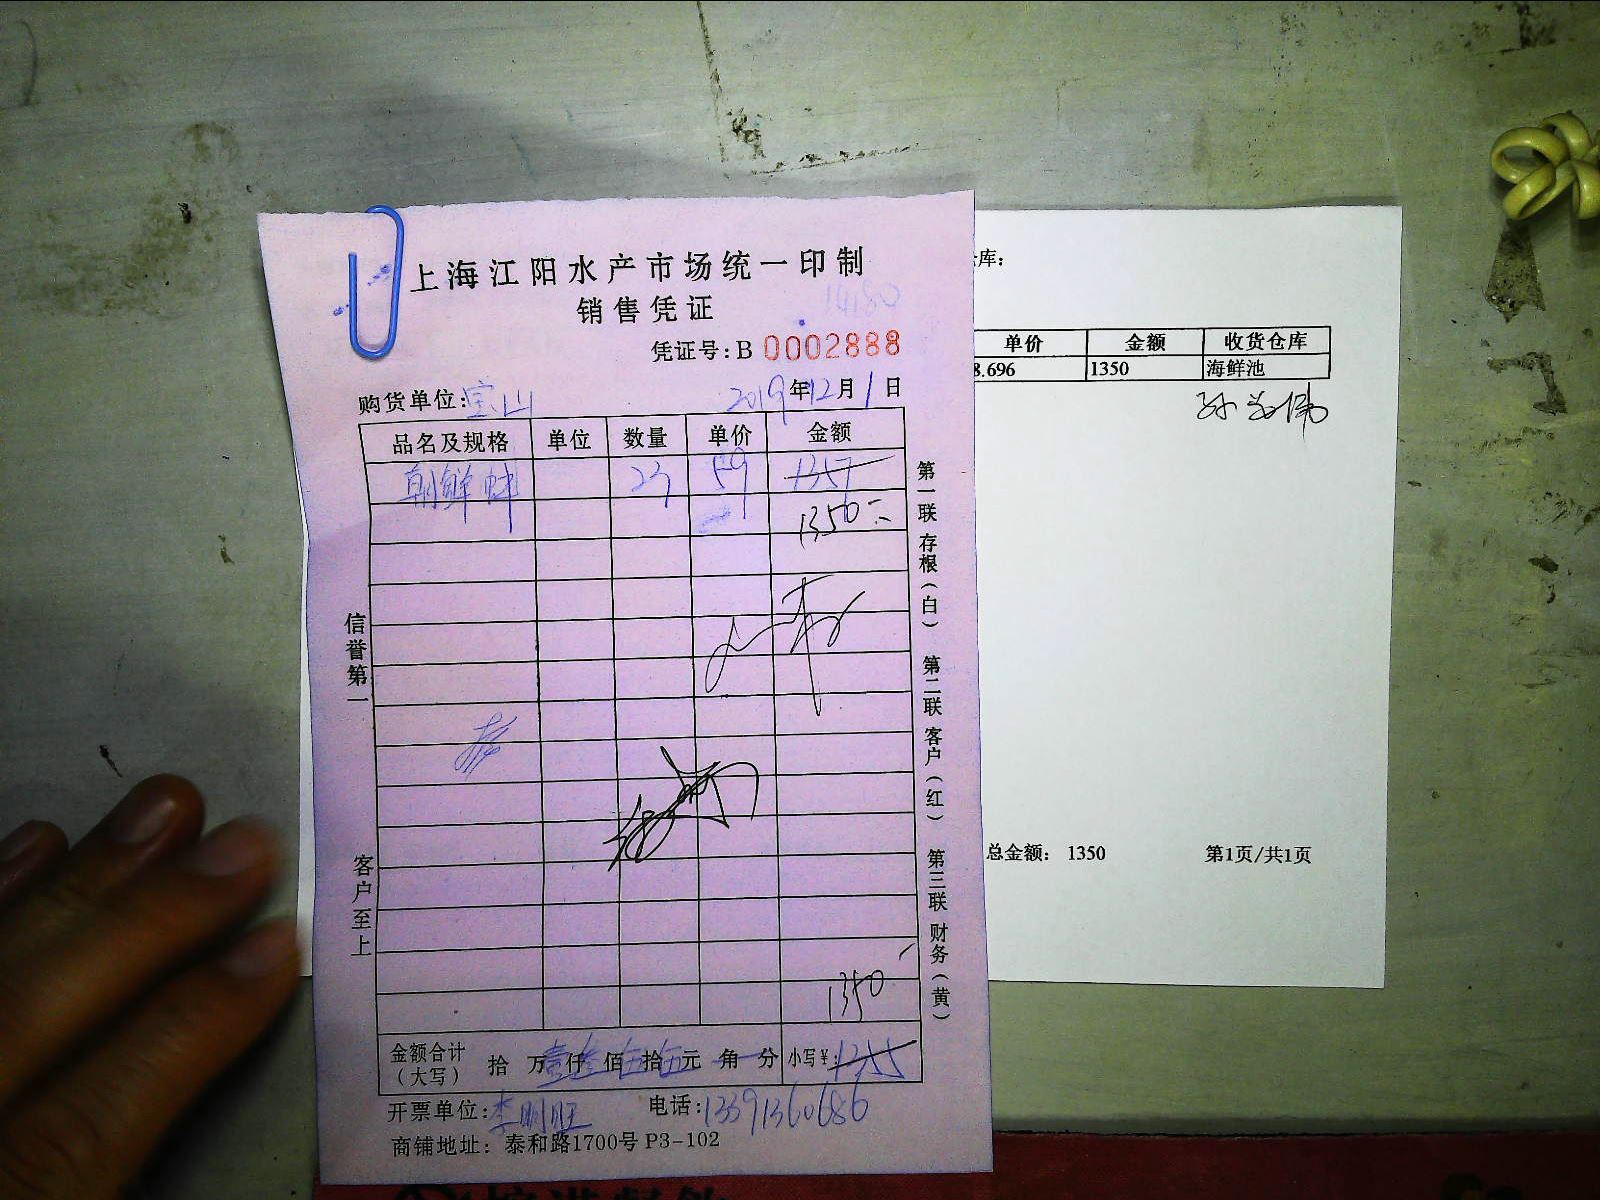 上海江阳水产市场统一印制
销售凭证
14180
凭证号: B 0002888
购货单位: 宝山 2019年12月1日
品名及规格 单位 数量 单价 金额
朝鲜蚌 23 59 1357
1350
1350
金额合计（大写） 拾 万壹仟叁佰伍拾伍元 角 分 小写¥: 1355
开票单位: 李明旺 电话: 13391360686
商铺地址: 泰和路1700号 P3-102
信誉第一 客户至上
第一联 存根（白） 第二联 客户（红） 第三联 财务（黄）
库:
单价 金额 收货仓库
8.696 1350 海鲜池
总金额: 1350 第1页/共1页